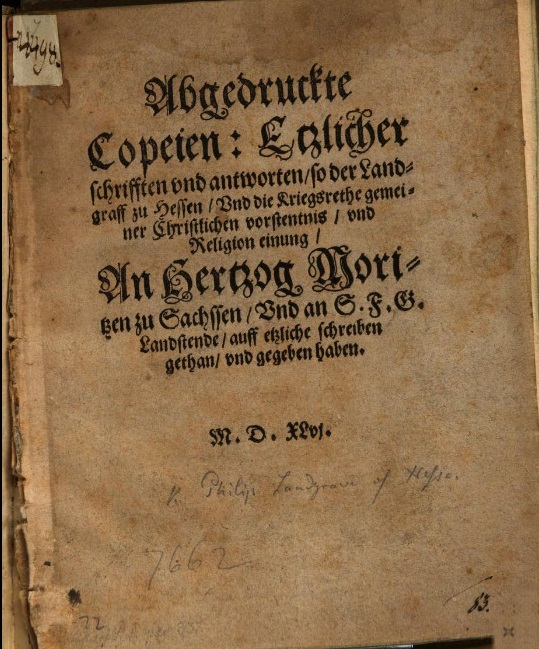 Abgedruckte
Copeien: Etzlicher
schrifften vnd antworten/so der Land-
graff zu Hessen/Vnd die Kriegsrethe gemei-
ner Christlichen vorstentnis/vnd
Religion einung/
An Hertzog Mori-
tzen zu Sachssen/Vnd an S.F.G.
Landstende/auff etzliche schreiben
gethan/vnd gegeben haben.
M. D. XLvj.
Philip Landgrave of Hesse.
7662
22
83.